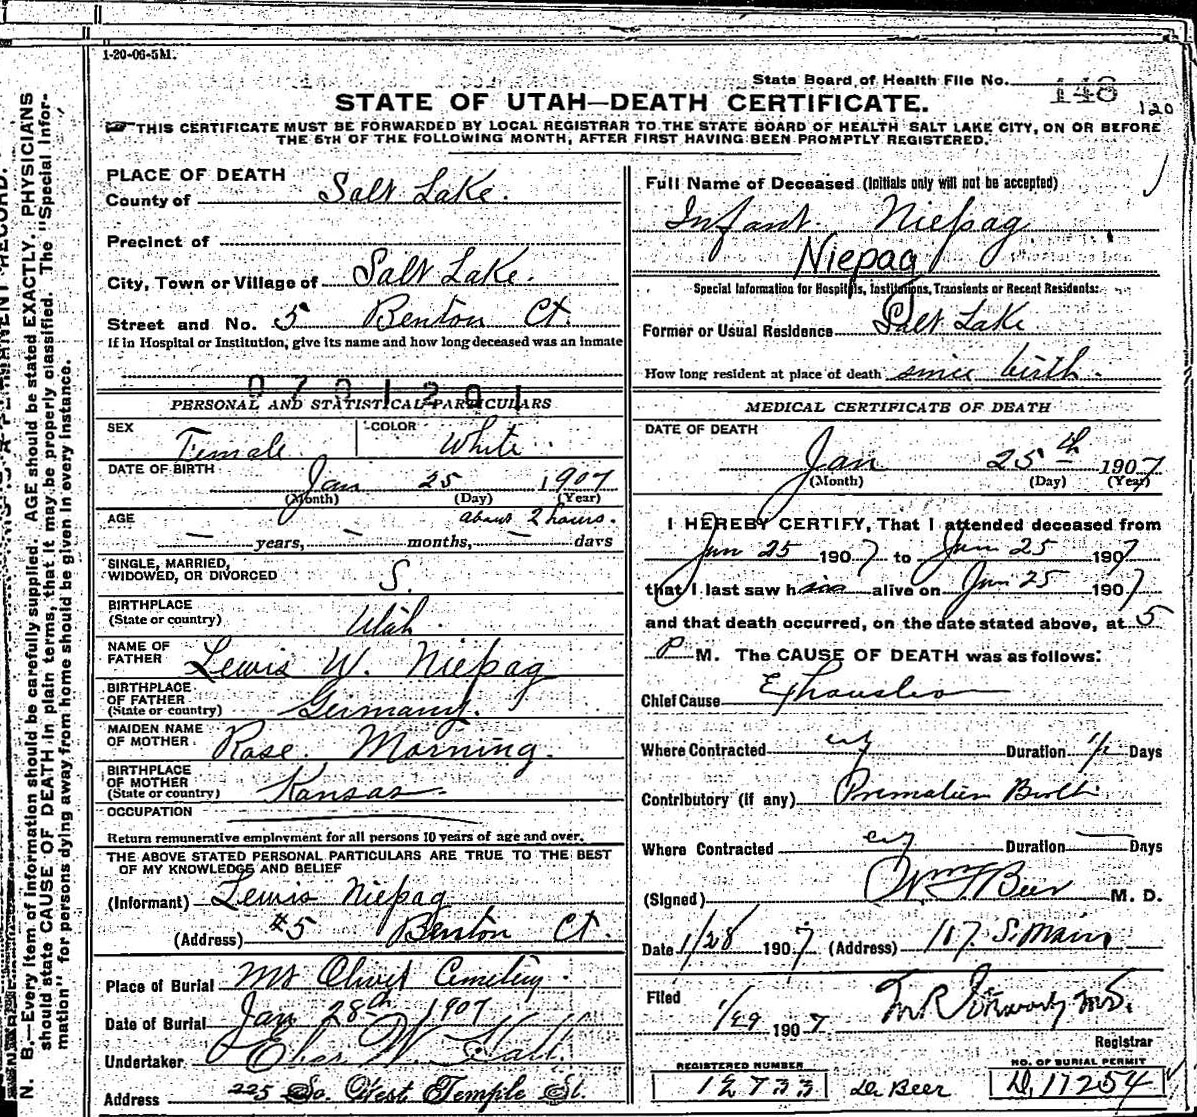 1-20-06-5M.
State Board of Health File No. 148
120
STATE OF UTAH—DEATH CERTIFICATE.
THIS CERTIFICATE MUST BE FORWARDED BY LOCAL REGISTRAR TO THE STATE BOARD OF HEALTH SALT LAKE CITY, ON OR BEFORE
THE 5TH OF THE FOLLOWING MONTH, AFTER FIRST HAVING BEEN PROMPTLY REGISTERED.
PLACE OF DEATH
County of Salt Lake.
Precinct of
City, Town or Village of Salt Lake.
Street and No. 5 Benton Ct.
If in Hospital or Institution, give its name and how long deceased was an inmate
PERSONAL AND STATISTICAL PARTICULARS
SEX Female COLOR White
DATE OF BIRTH Jan 25 1907
(Month) (Day) (Year)
AGE about 2 hours.
— years, — months, — days
SINGLE, MARRIED,
WIDOWED, OR DIVORCED S.
BIRTHPLACE
(State or country) Utah
NAME OF
FATHER Lewis W. Niepag
BIRTHPLACE
OF FATHER
(State or country) Germany.
MAIDEN NAME
OF MOTHER Rose Morning.
BIRTHPLACE
OF MOTHER
(State or country) Kansas.
OCCUPATION
Return remunerative employment for all persons 10 years of age and over.
THE ABOVE STATED PERSONAL PARTICULARS ARE TRUE TO THE BEST
OF MY KNOWLEDGE AND BELIEF
(Informant) Lewis Niepag
(Address) #5 Benton Ct.
Place of Burial Mt Olivet Cemetery.
Date of Burial Jan 28th 1907
Undertaker Chas W. Hall
Address 225 So. West Temple St.
Full Name of Deceased (Initials only will not be accepted)
Infant Niepag
Niepag
Special Information for Hospitals, Institutions, Transients or Recent Residents:
Former or Usual Residence Salt Lake
How long resident at place of death since birth.
MEDICAL CERTIFICATE OF DEATH
DATE OF DEATH
Jan 25th 1907
(Month) (Day) (Year)
I HEREBY CERTIFY, That I attended deceased from
Jan 25 1907 to Jan 25 1907
that I last saw h alive on Jan 25 1907
and that death occurred, on the date stated above, at 5
P M. The CAUSE OF DEATH was as follows:
Chief Cause Exhaustion
Where Contracted city Duration Days
Contributory (if any) Premature Birth
Where Contracted city Duration — Days
(Signed) Wm F Beer M. D.
Date 1/28 1907 (Address) 117 S. Main
Filed
1/29 1907
Registrar
REGISTERED NUMBER
12733
Dr Beer
NO. OF BURIAL PERMIT
D, 17254
N. B.—Every item of information should be carefully supplied. AGE should be stated EXACTLY. PHYSICIANS
should state CAUSE OF DEATH in plain terms, that it may be properly classified. The "Special Infor-
mation" for persons dying away from home should be given in every instance.